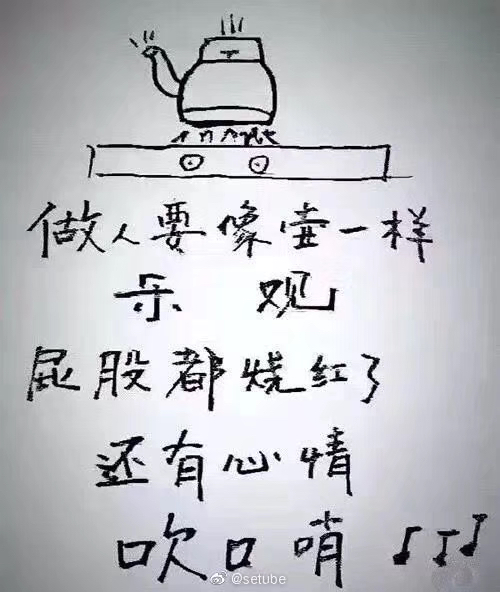 做人要像壶一样
乐 观
屁股都烧红了
还有心情
吹口哨
@setube